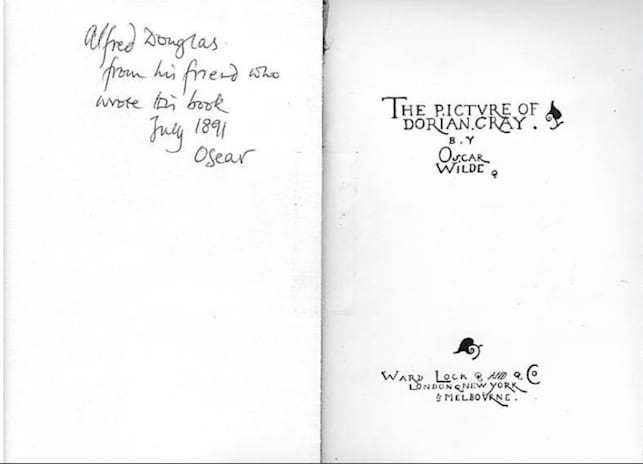 Alfred Douglas
from his friend who
wrote this book
July 1891
Oscar
THE PICTVRE OF
DORIAN.GRAY.
B.Y
OSCAR
WILDE
WARD LOCK AND Co
LONDON NEW YORK
& MELBOVRNE.